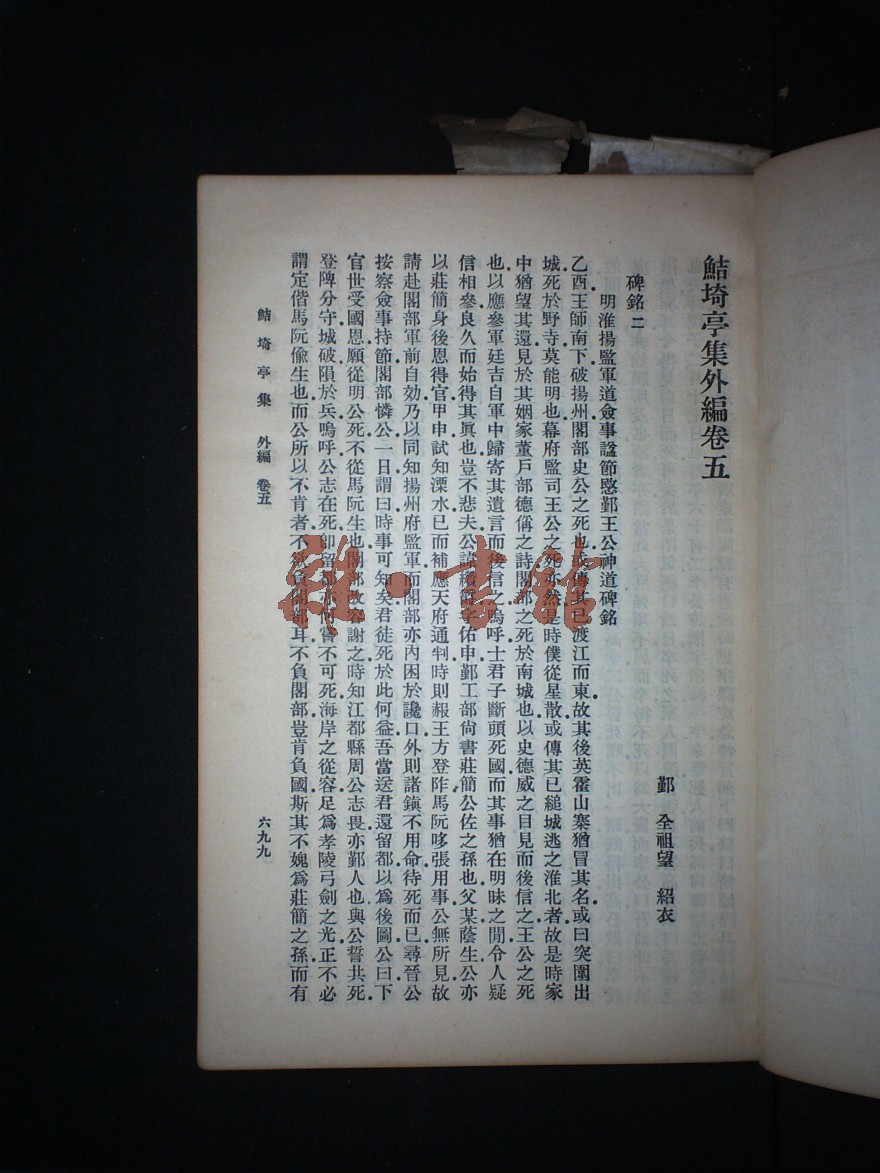 鮚埼亭集外編卷五
鄞 全祖望 紹衣
碑銘二
明淮揚監軍道僉事諡節愍鄞王公神道碑銘
乙酉王師南下破揚州閣部史公之死也或傳其已渡江而東故其後英霍山寨猶冒其名或曰突圍出
城死於野寺莫能明也幕府監司王公之死亦然是時僕從星散或傳其已縋城逃之淮北者故是時家
中猶望其還見於其姻家董戶部德偁之詩閣部之死於南城也以史德威之目見而後信之王公之死
也以應參軍廷吉自軍中歸寄其遺言而後信之嗚呼士君子斷頭死國而其事猶在明昧之間令人疑
信相參良久而始得其眞也豈不悲夫公諱纘爵字佑申鄞工部尙書莊簡公佐之孫也父某蔭生公亦
以莊簡身後恩得官甲申試知溧水已而補應天府通判時則赧王方登阼馬阮哆張用事公無所見故
請赴閣部軍前自効乃以同知揚州府監軍而閣部亦內困於讒口外則諸鎭不用命待死而已尋晉公
按察僉事持節閣部憐公一日謂曰時事可知矣君徒死於此何益吾當送君還留都以爲後圖公曰下
官世受國恩願從明公死不從馬阮生也閣部改容謝之時知江都縣周公志畏亦鄞人也與公誓共死
登陴分守城破隕於兵嗚呼公志在死卽留都亦何嘗不可死海岸之從容足爲孝陵弓劍之光正不必
謂定偕馬阮偷生也而公所以不肯者不欲負閣部耳不負閣部豈肯負國斯其不媿爲莊簡之孫而有
鮚埼亭集 外編 卷五
六九九
雜·書館